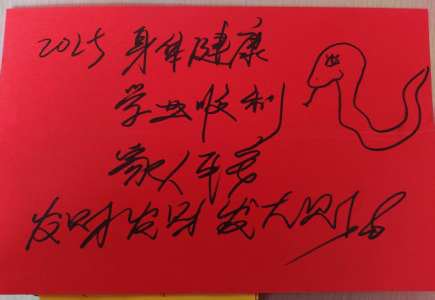 2025 身体健康
学业顺利
家人平安
发财发财发大财